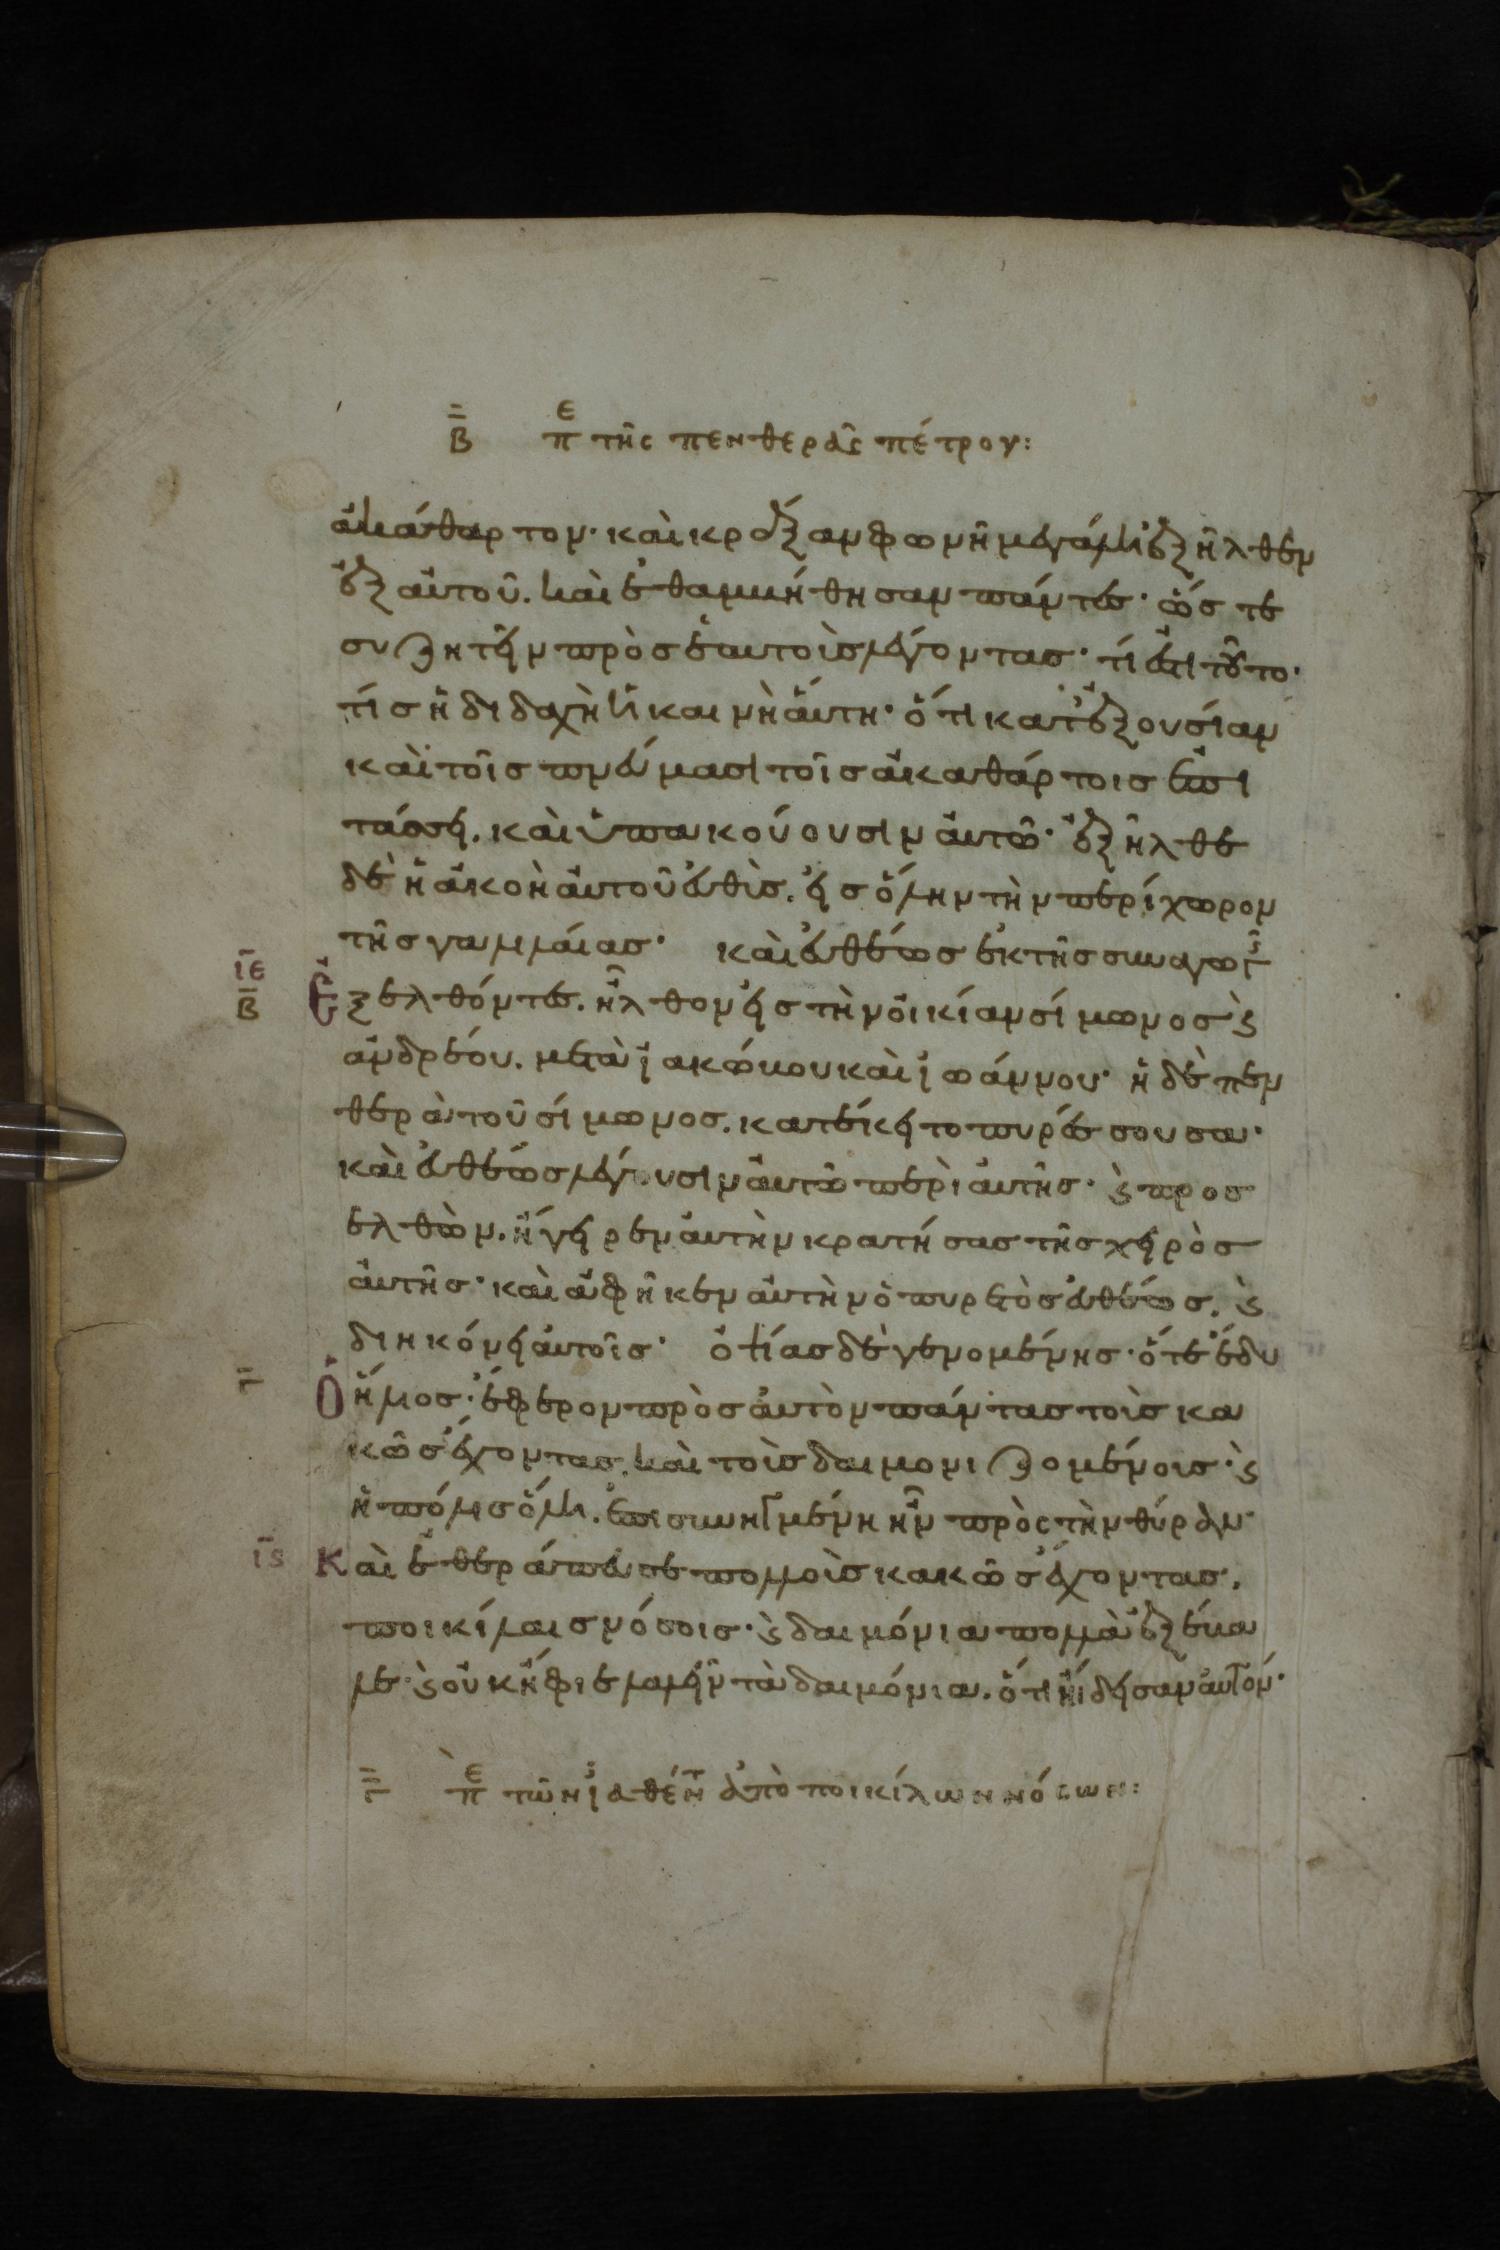 Β πε τῆς πενθερᾶς πέτρου:
ἀκάθαρτον· καὶ κράξαν φωνῆ μεγάλη ἐξῆλθεν
ἐξ αὐτοῦ. καὶ ἐθαμβήθησαν πάντες· ὥστε
συζητεῖν πρὸς ἑαυτοὺς λέγοντας· τί ἐστι τοῦτο·
τίς ἡ διδαχὴ ἡ καινὴ αὕτη· ὅτι κατ' ἐξουσίαν
καὶ τοῖς πνεύμασι τοῖς ἀκαθάρτοις ἐπι
τάσσει. καὶ ὑπακούουσιν αὐτῶ· ἐξῆλθε
δὲ ἡ ἀκοὴ αὐτοῦ εὐθὺς. εἰς ὅλην τὴν περίχωρον
τῆς γαλιλαίας· καὶ εὐθέως ἐκ τῆς συναγωγῆς
ιε Β Ἐξελθόντες. ἦλθον εἰς τὴν οἰκίαν σίμωνος ϗ
ἀνδρέου. μετὰ ἰακώβου καὶ ἰωάννου· ἡ δὲ πεν
θερὰ τοῦ σίμωνος. κατέκειτο πυρέσσουσα·
καὶ εὐθέως λέγουσιν αὐτῶ περὶ αὐτῆς· ϗ προσ
ελθὼν. ἤγειρεν αὐτὴν κρατήσας τῆς χειρὸς
αὐτῆς· καὶ ἀφῆκεν αὐτὴν ὁ πυρετὸς εὐθέως. ϗ
διηκόνει αὐτοῖς· ὀψίας δὲ γενομένης· ὅτε ἔδυ
Γ Ὁ ἥλιος· ἔφερον πρὸς αὐτὸν πάντας τοὺς κα
κῶς ἔχοντας. καὶ τοὺς δαιμονιζομένους· ϗ
ἡ πόλις ὅλη. ἐπισυνηγμένη ἦν πρὸς τὴν θύραν·
ις Καὶ ἐθεράπευσε πολλοὺς κακῶς ἔχοντας.
ποικίλαις νόσοις· ϗ δαιμόνια πολλὰ ἐξέβα
λε· ϗ οὐκ ἤφιε λαλεῖν τὰ δαιμόνια. ὅτι ἤιδεισαν αὐτόν·
Γ πε τῶν ἰαθέντ ἀπὸ ποικίλων νόσων: